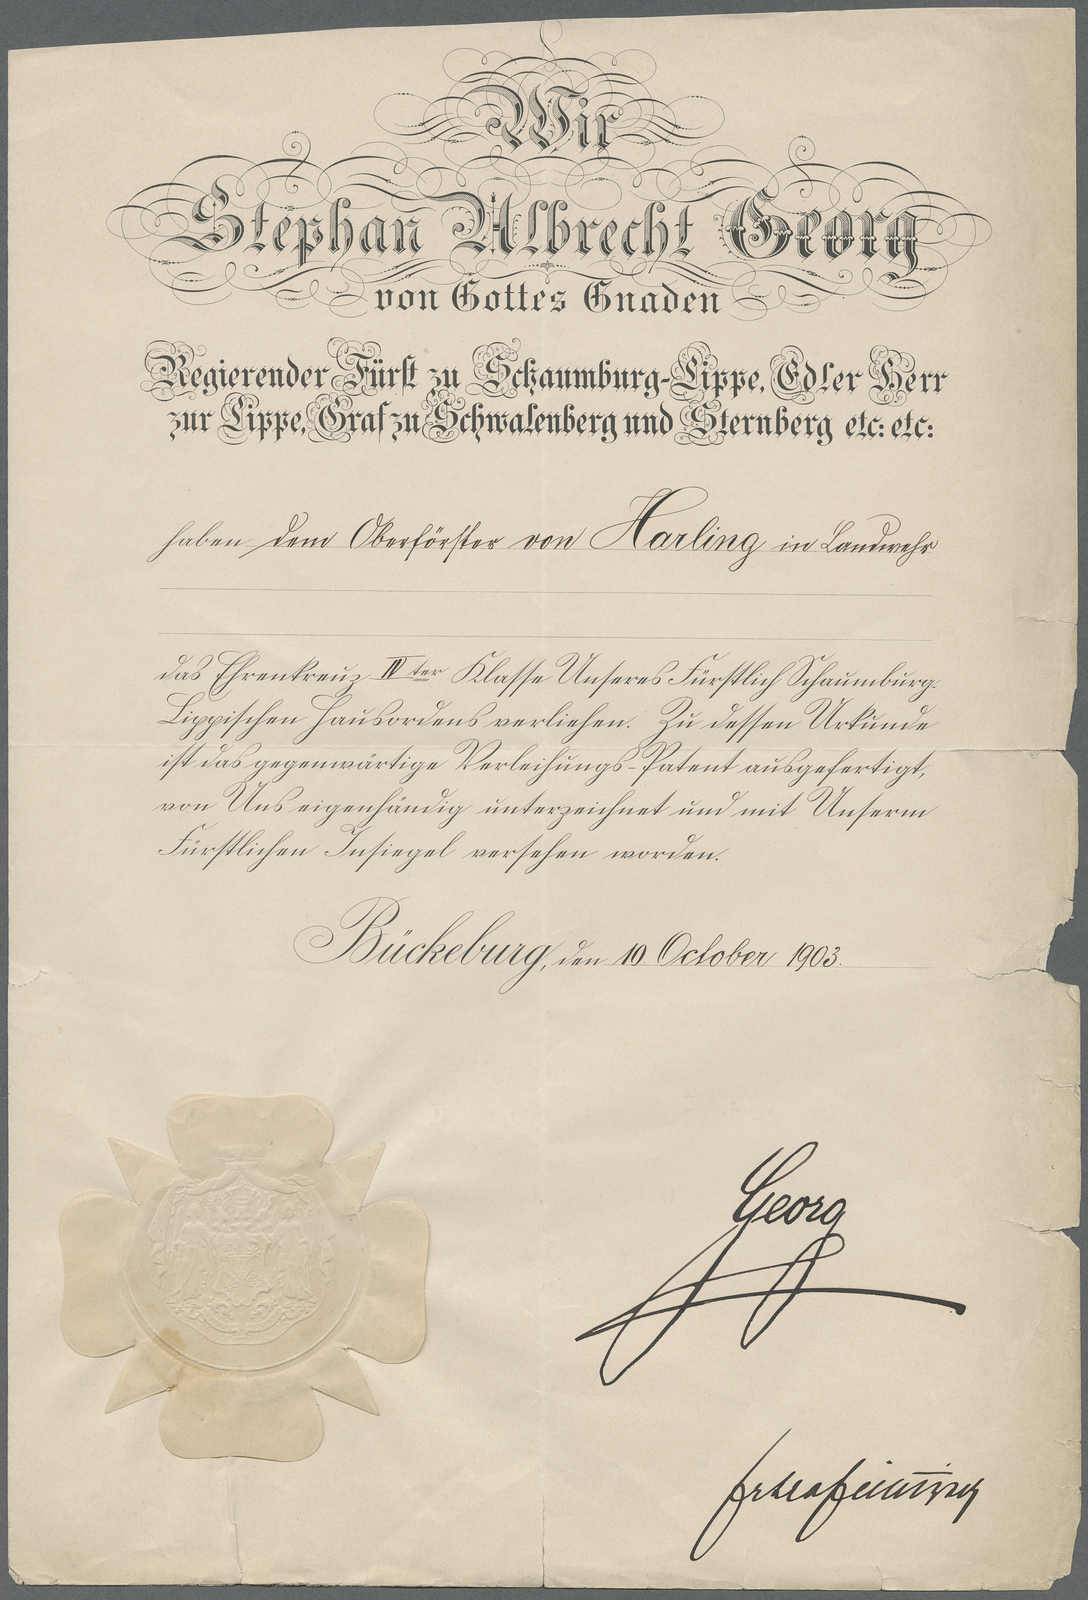 Wir
Stephan Albrecht Georg
von Gottes Gnaden
Regierender Fürst zu Schaumburg-Lippe, Edler Herr
zur Lippe, Graf zu Schwalenberg und Sternberg etc: etc:
haben dem Oberförster von Harling in Landwehr
das Ehrenkreuz IV ter Klasse Unseres Fürstlich Schaumburg-
Lippischen Hausordens verliehen. Zu dessen Urkunde
ist das gegenwärtige Verleihungs-Patent ausgefertigt,
von Uns eigenhändig unterzeichnet und mit Unserm
Fürstlichen Insiegel versehen worden.
Bückeburg, den 10 October 1903.
Georg